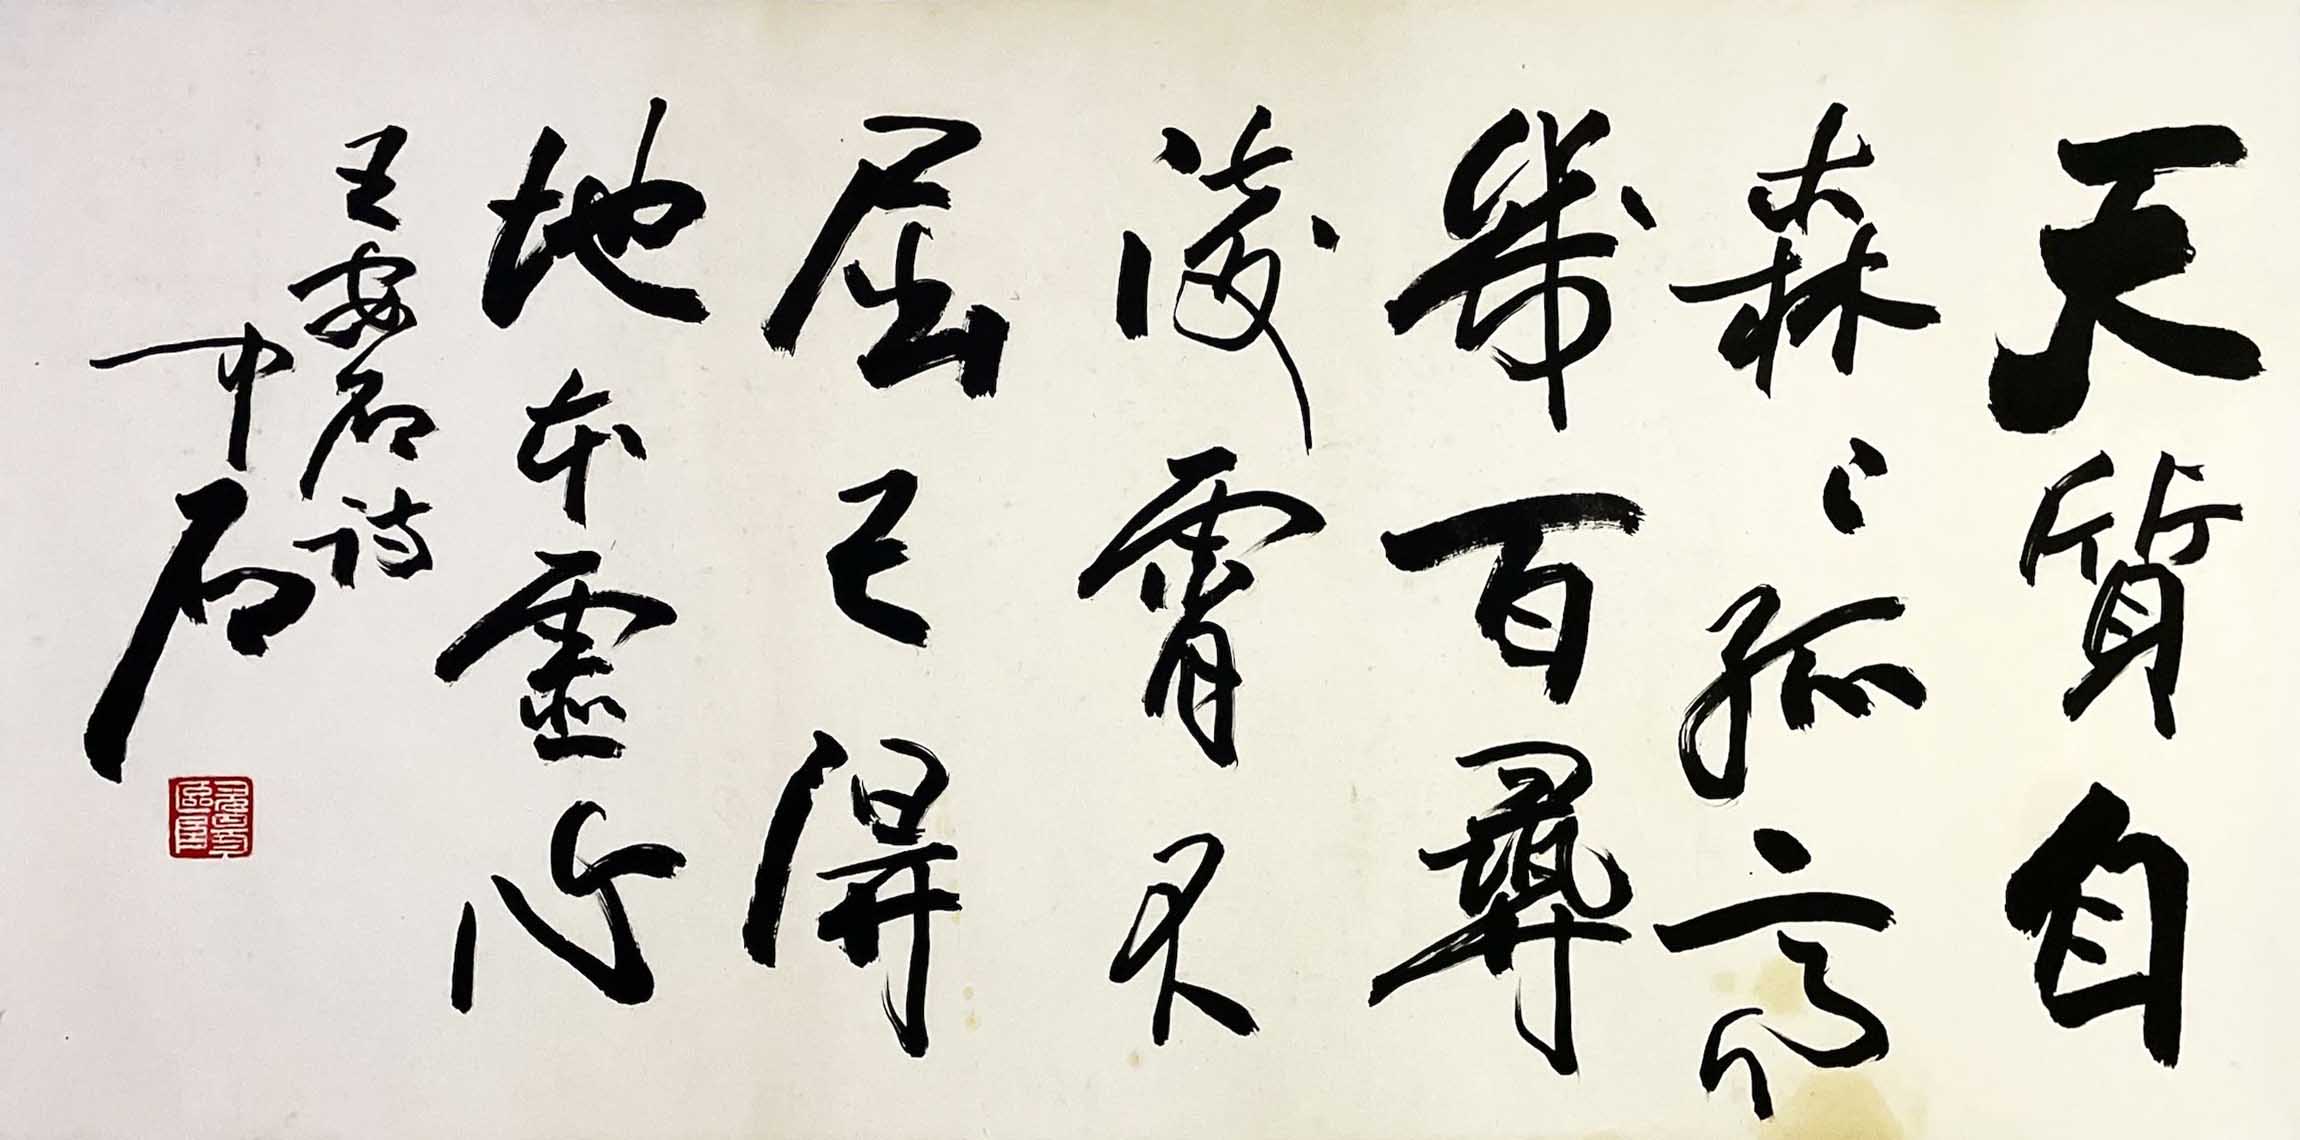 天質自
森〻孤高
幾百尋
凌霄不
屈己得
地本虛心
王安石詩
中石